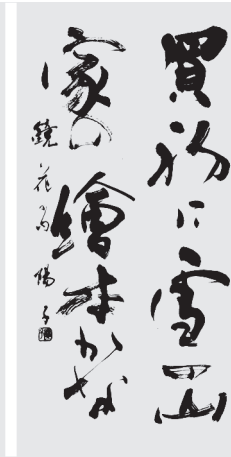 買初に雪の山
家の繪本かな
鏡花句 陽子